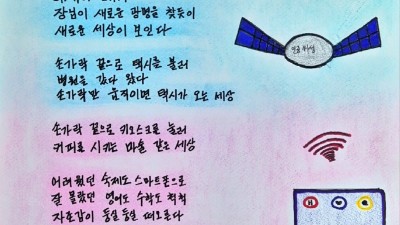 장님이 새로운 광명을 찾듯이
새로운 세상이 보인다
손가락 끝으로 택시를 불러
병원을 갔다 왔다
손가락만 움직이면 택시가 오는 세상
손가락 끝으로 키오스크를 눌러
커피를 시키는 마술 같은 세상
어려웠던 숙제도 스마트폰으로
잘 몰랐던 영어도 수학도 척척
자존감이 둥실둥실 떠오른다
인공위성